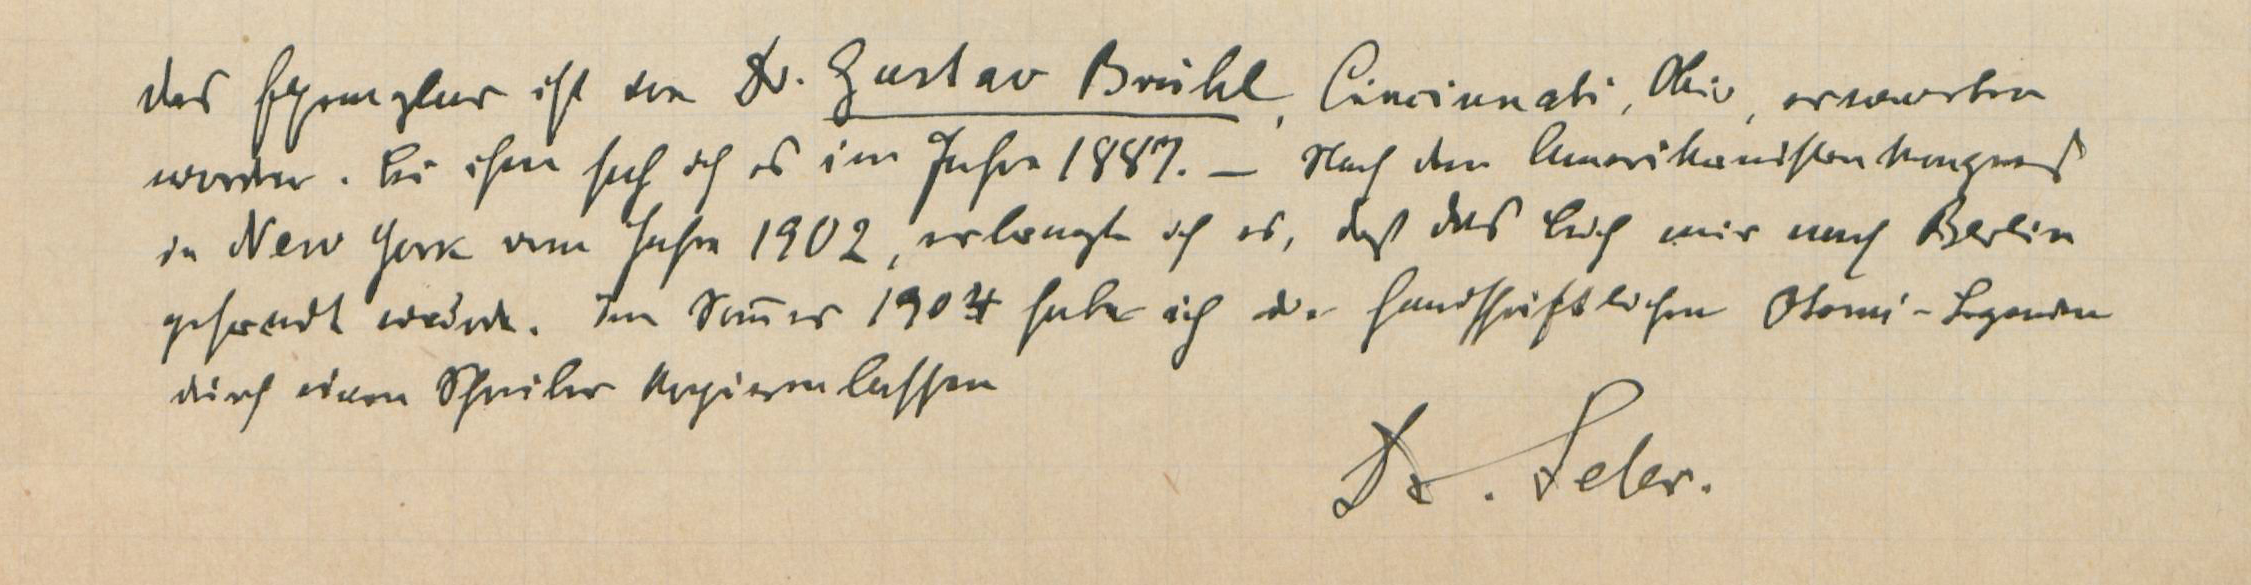 Das Exemplar ist von Dr. Gustav Brühl, Cincinnati, Ohio, erworben
worden. Bei ihm sah ich es im Jahre 1887. – Nach dem Amerikanistenkongress
in New York vom Jahre 1902, erlangte ich es, daß das Buch mir nach Berlin
gesandt wurde. Im Som̅er 1904 habe ich die handschriftlichen Otomi-Legenden
durch einen Schreiber kopieren lassen
Dr. Seler.